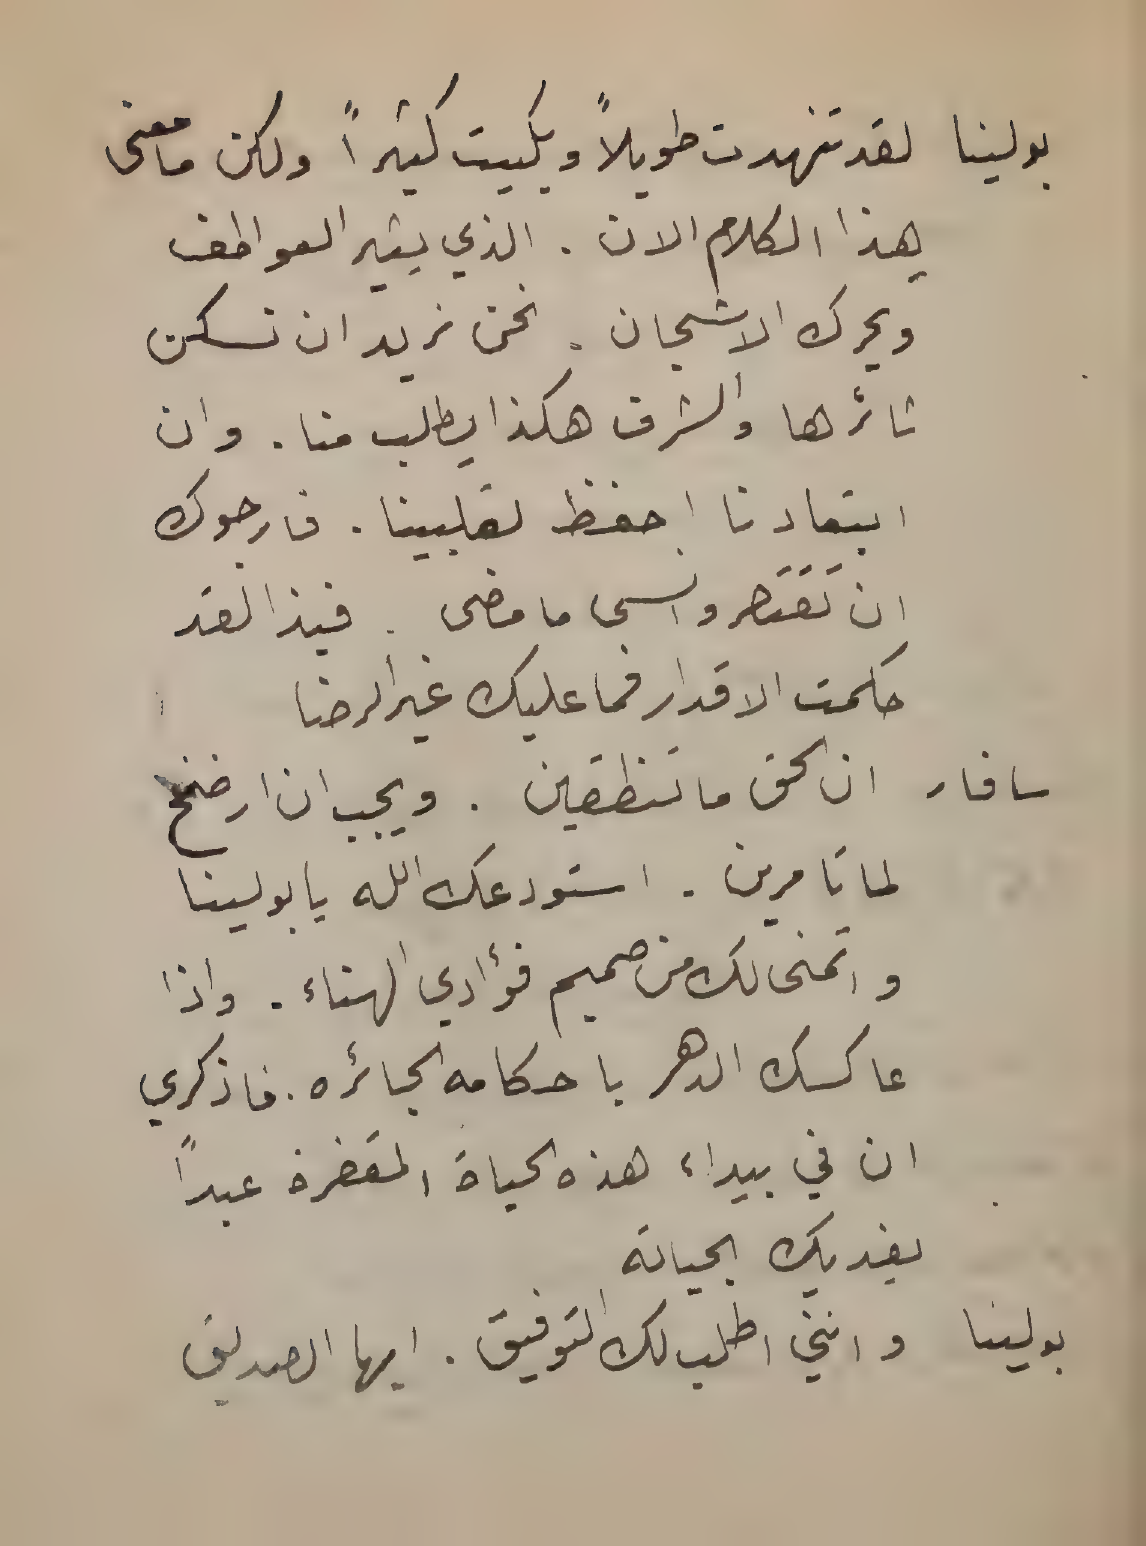 بولينا لقد تنهدت طويلاً وبكيت كثيراً ولكن ما معنى
هذا الكلام الان . الذي يثير العواطف
ويحرك الاشجان . نحن نريد ان تسكن
ثائرها والشرف هكذا يطلب منا . وان
ابتعادنا احفظ لقلبينا . فارجوك
ان تقتصر وانسى ما مضى . لقد
حكمت الاقدار فما عليك غير الرضا
سافار ان الحق ما تنطقين . ويجب ان ارضخ
لما تامرين . استودعك الله يا بولينا
واتمنى لك من صميم فؤادي الهناء . واذا
عاكسك الدهر باحكامه الجائره . فاذكري
ان في بيداء هذه الحياة المقفرة عبداً
يفديك بحياته
بولينا وانني اطلب لك التوفيق . ايها الصديق